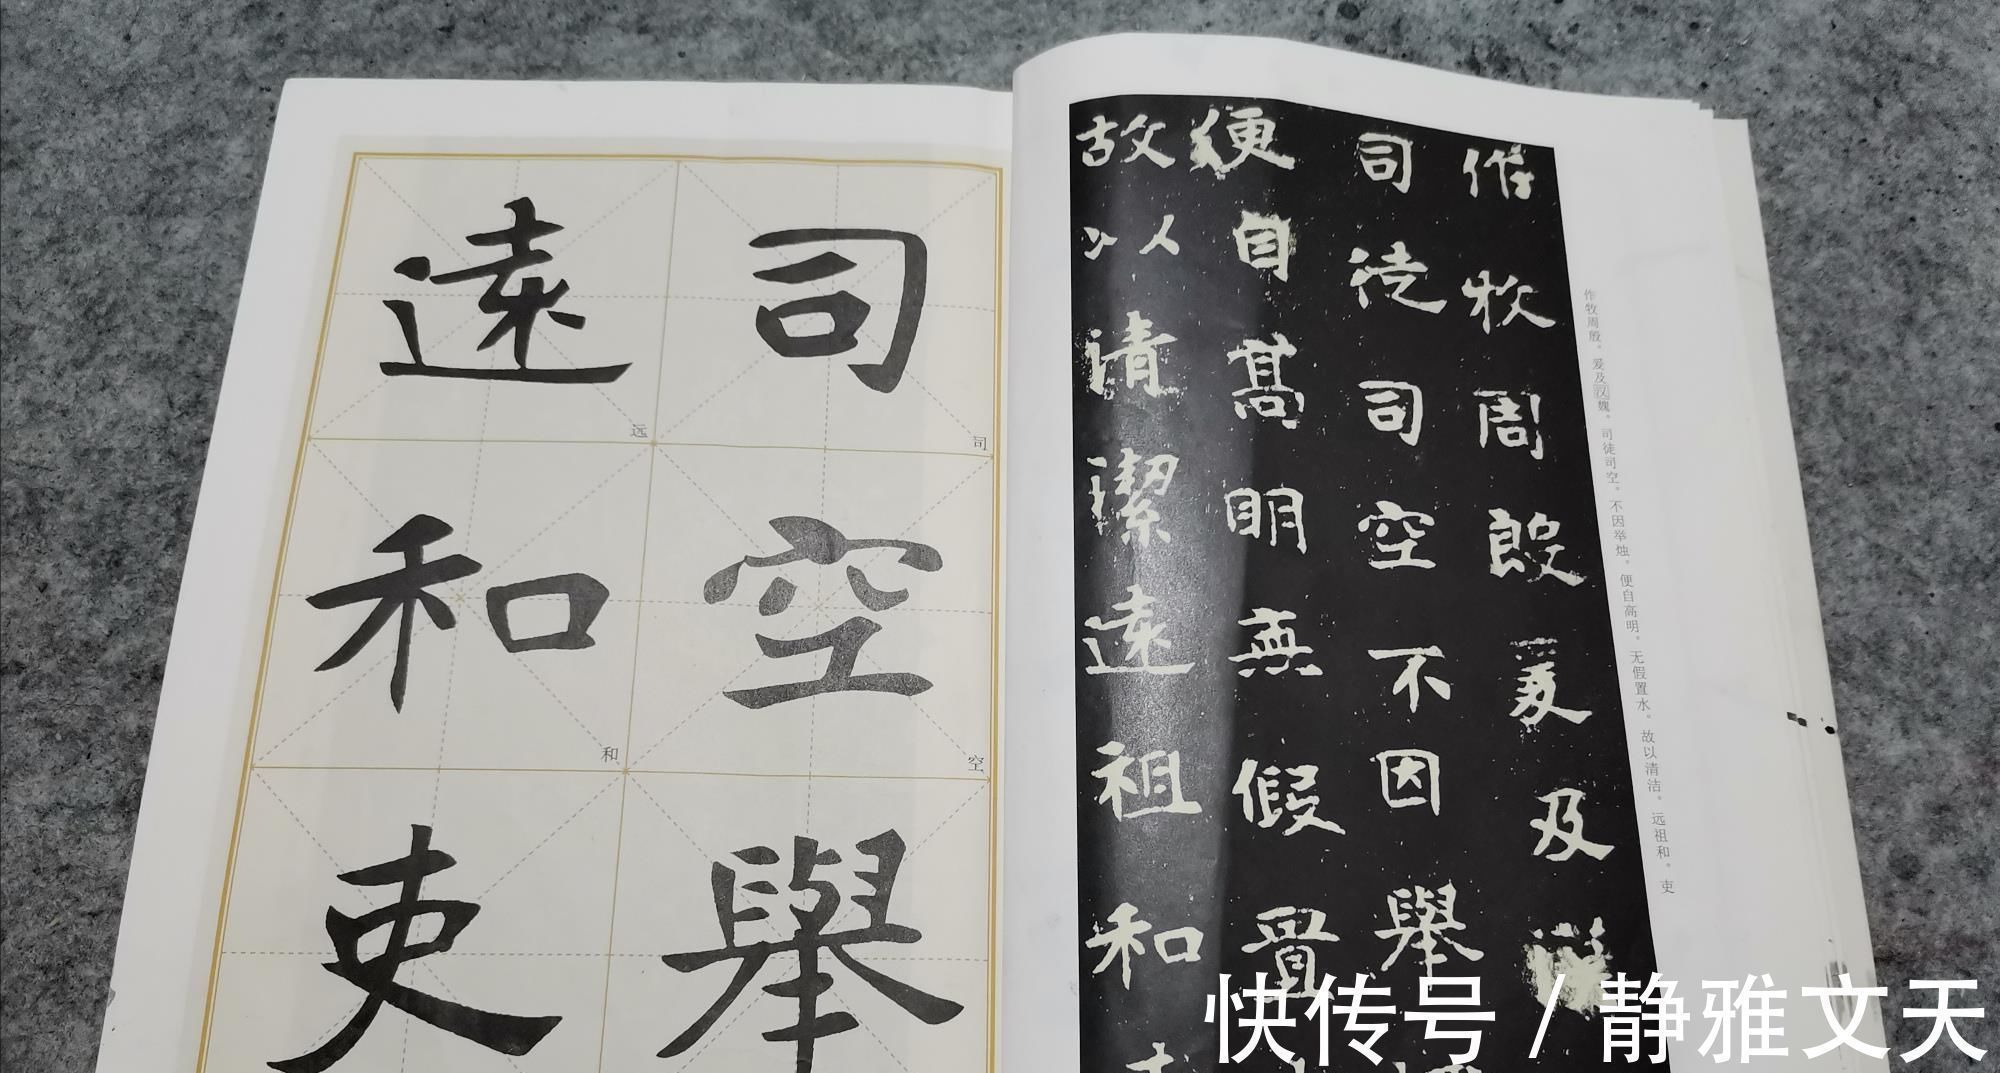 司
司
空
空
舉
遠
远
和
和
吏
作牧周殷爰及
司徒司空不因舉
便自高明無假置
故以清潔遠祖和
作牧周殷。爰及汉魏。司徒司空。不因举烛。便自高明。无假置水。故以清洁。远祖和。吏
快传号/静雅文天